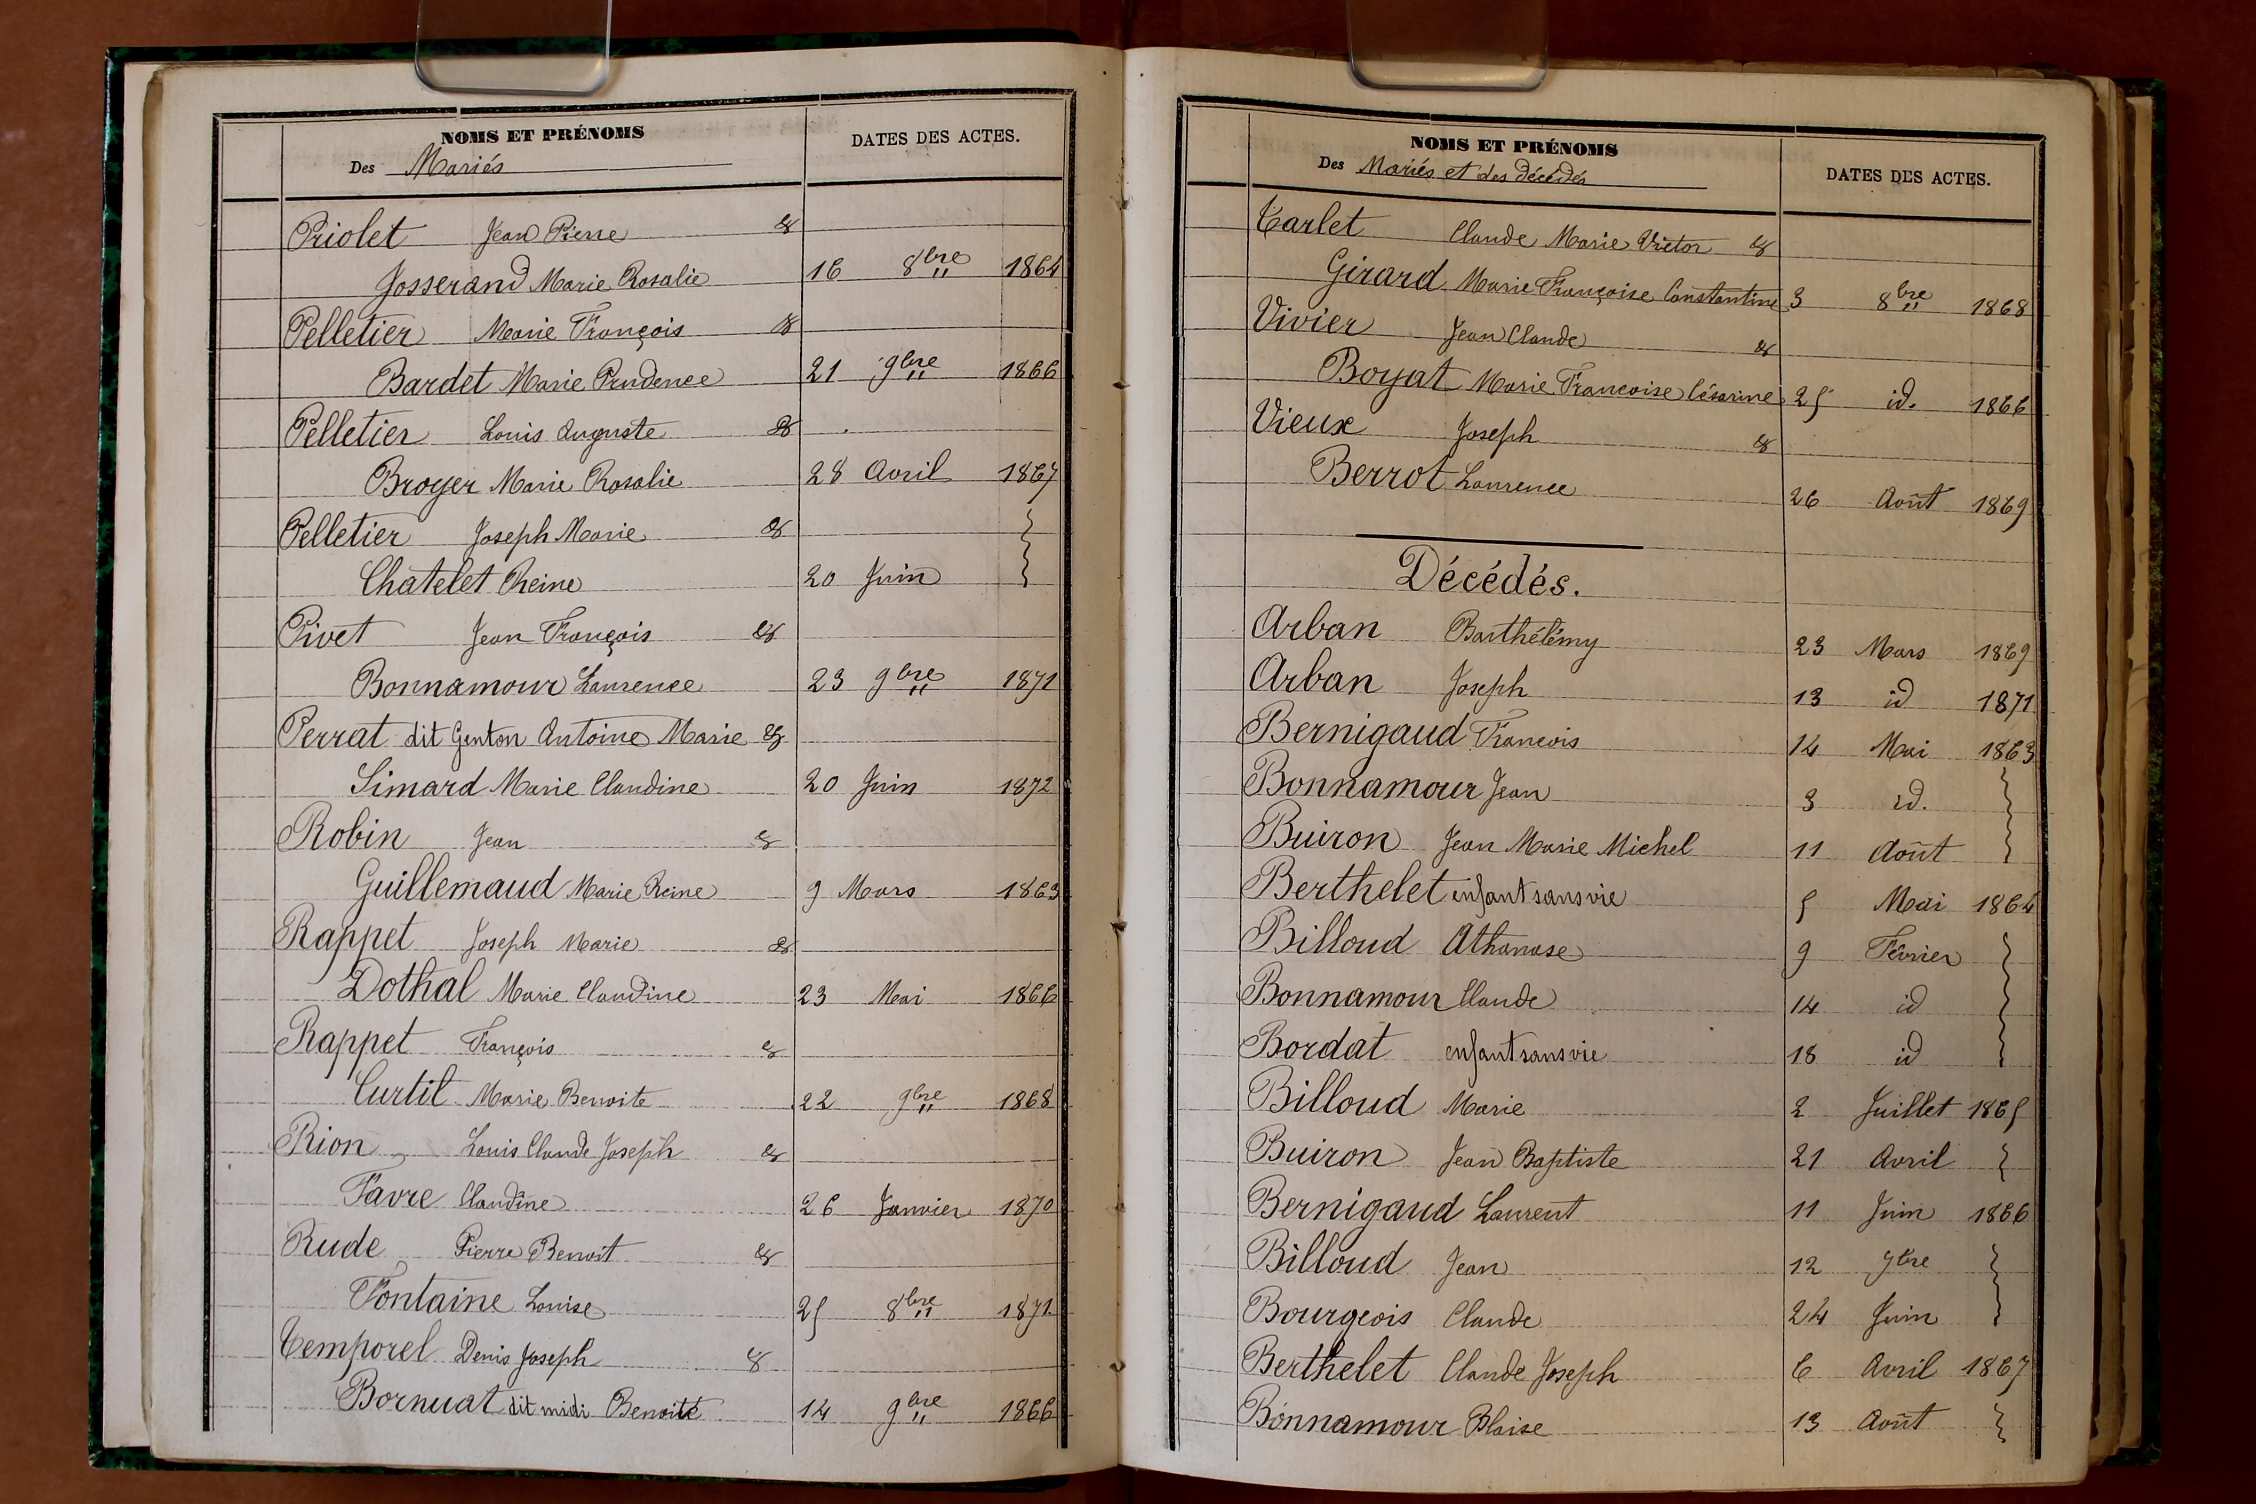 NOMS ET PRÉNOMS
DATES DES ACTES.
Des Mariés
Priolet Jean Pierre &
Josserand Marie Rosalie 16 8bre 1864
Pelletier Marie François &
Bardet Marie Prudence 21 9bre 1866
Pelletier Louis Auguste &
Broyer Marie Rosalie 28 Avril 1867
Pelletier Joseph Marie &
Chatelet Reine 20 Juin
Pivet Jean François &
Bonnamour Laurence 23 9bre 1871
Perrat dit Genton Antoine Marie &
Simard Marie Claudine 20 Juin 1872
Robin Jean &
Guillemaud Marie Reine 9 Mars 1863
Rappet Joseph Marie &
Dothal Marie Claudine 23 Mai 1866
Rappet François &
Curtil Marie Benoite 22 9bre 1868
Rion Louis Claude Joseph &
Favre Claudine 26 Janvier 1870
Rude Pierre Benoit &
Fontaine Louise 25 8bre 1871
Temporel Denis Joseph &
Bornuat dit midi Benoite 14 9bre 1866
NOMS ET PRÉNOMS
DATES DES ACTES.
Des Mariés et des décédés
Tarlet Claude Marie Victor &
Girard Marie Françoise Constantine 3 8bre 1868
Vivier Jean Claude &
Boyat Marie Francoise Césarine 25 id. 1866
Vieux Joseph &
Berrot Laurence 26 Août 1869
Décédés.
Arban Barthélémy 23 Mars 1869
Arban Joseph 13 id 1871
Bernigaud Francois 14 Mai 1863
Bonnamour Jean 3 id.
Buiron Jean Marie Michel 11 Août
Berthelet enfant sans vie 5 Mai 1864
Billoud Athanase 9 Février
Bonnamour Claude 14 id
Bordat enfant sans vie 18 id
Billoud Marie 2 Juillet 1865
Buiron Jean Baptiste 21 Avril
Bernigaud Laurent 11 Juin 1866
Billoud Jean 12 7bre
Bourgeois Claude 24 Juin
Berthelet Claude Joseph 6 Avril 1867
Bonnamour Blaise 13 Août